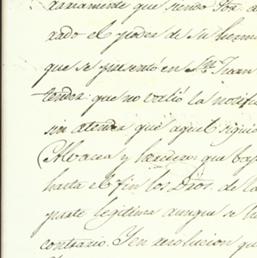 que siendo
rado el poder de su herma
que se presentó en Sn. Juan
tender que no valió la notifi
sin atender que aquel siguió
Albacea y heredero que baj
hasta el fin los Dros. de la
parte legitima aunque se h
contrario. Y en resolucion qu